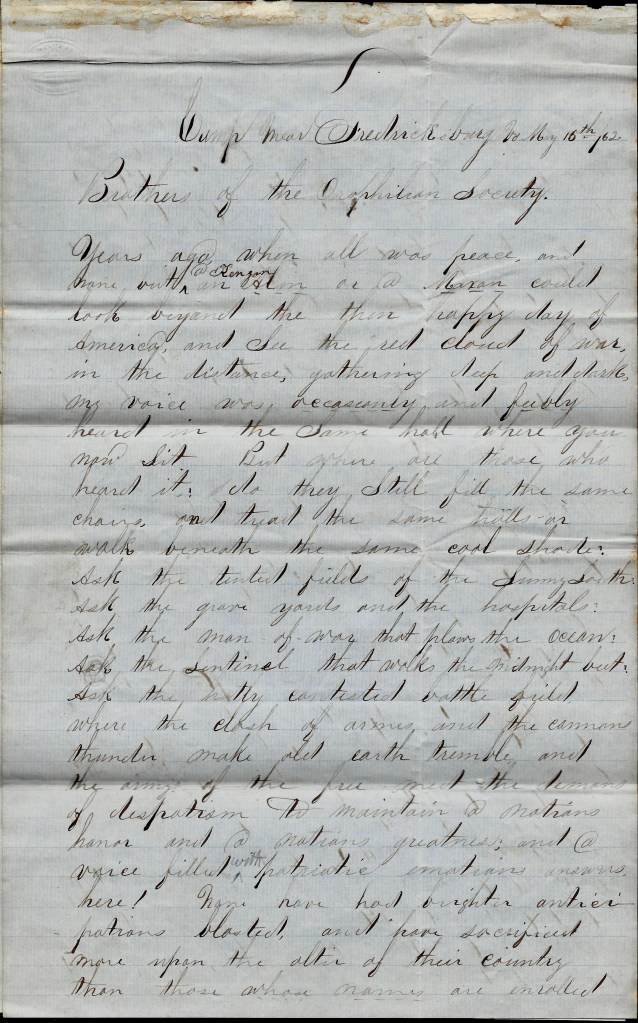 Camp Near Fredricksburg Va My 15th/62
Brothers of the Orophilian Society.
Years ago when all was peace, and
a Kengon
none but an Alin or a could
look beyand the then happy day of
America, and See the red cloud of war,
in the distance, gathering deep and dark,
my voice was occasionly and feebly
heard in the Same hall where you
now Sit. But where are those who
heard it: do they Still fill the same
chairs, and tread the same or
walk beneath the same cool shade:
Ask the tented fields of the Sunny South:
Ask the grave yards and the hospitals:
Ask the man-of-war that plows the ocean:
Ask the Sentinel that walks the midnight beat:
Ask the hotly contested battle field
where the clash of armes and the cannons
thunder make old earth tremble, and
the army of the free meet the demons
of despatism to maintain a nations
honor and a nations greatness; and a
with
voice filled patriotic emotions answers
here! None have had brighter antici
pations blasted, and have sacrificed
more upon the alter of their country
than those whose names are enrolled